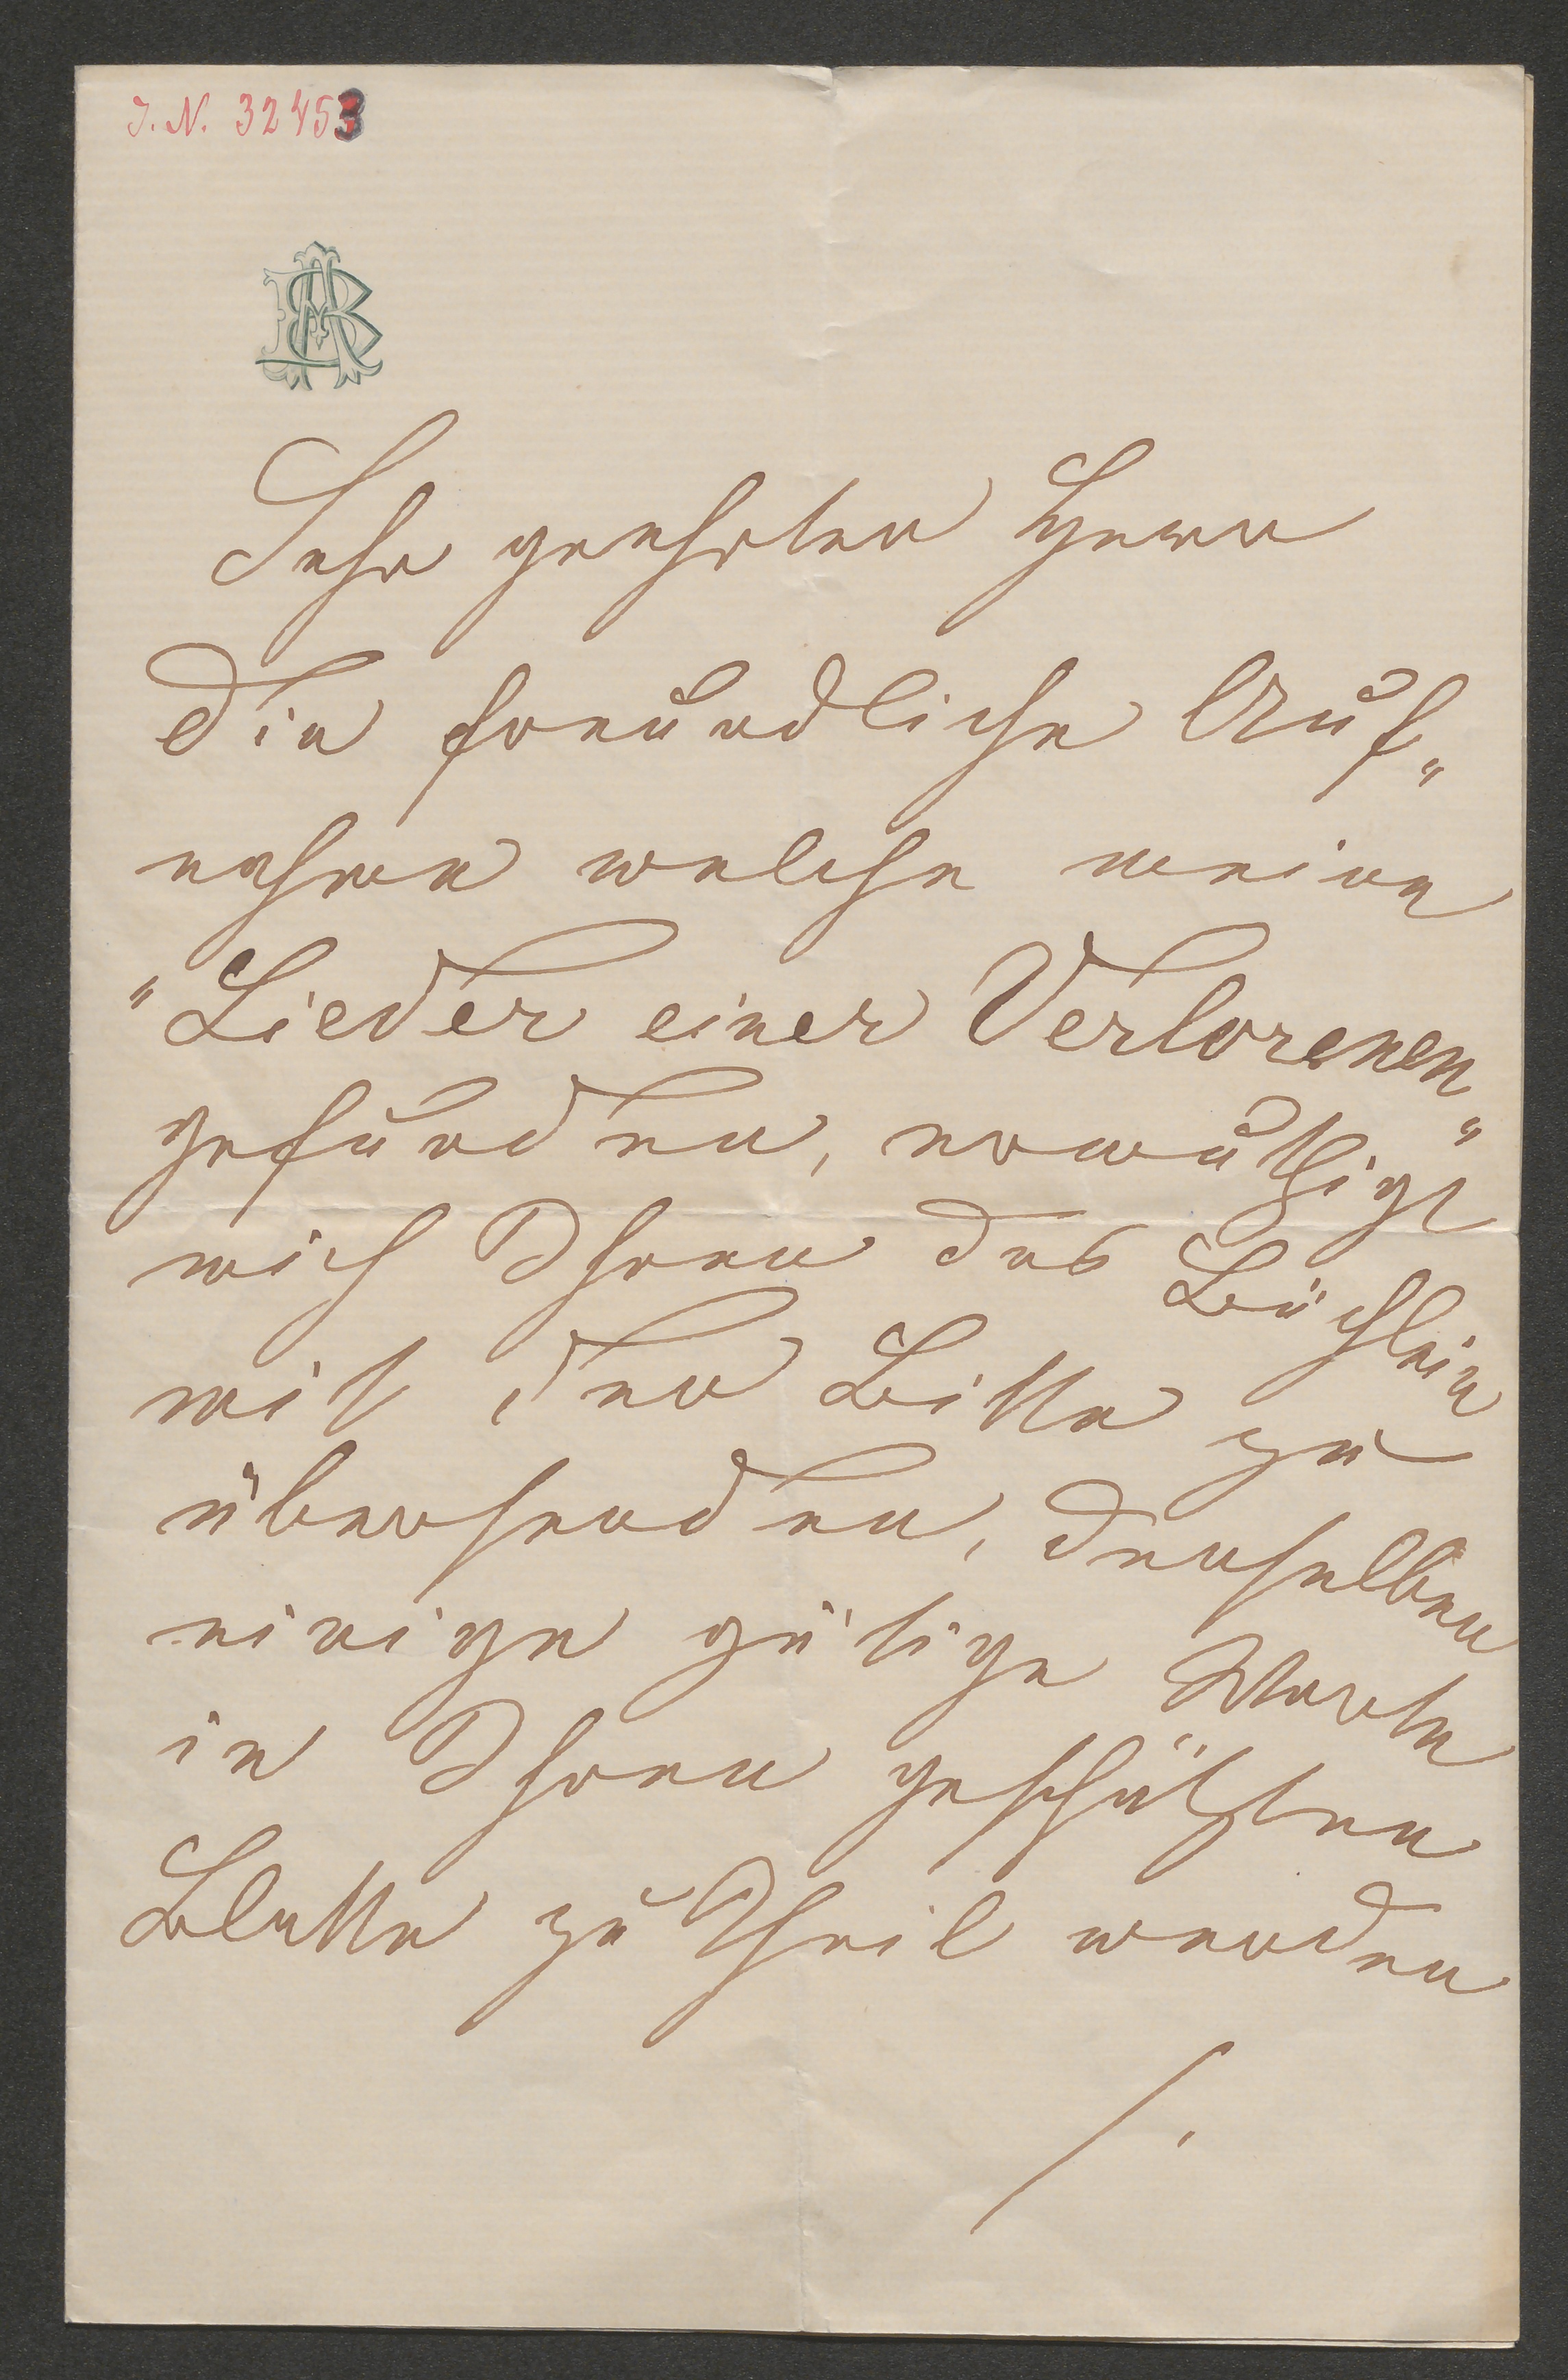 J. N. 32453
AB
Sehr geehrter Herr
Die freundliche Auf„
nahme welche meine
"Lieder einer Verlorenen"
gefunden, ermuthigt
mich Ihnen das Büchlein
mit der Bitte zu
übersenden, denselben
einige gütige Worte
in Ihren geschätzten
Blatte zu Theil werden
/.